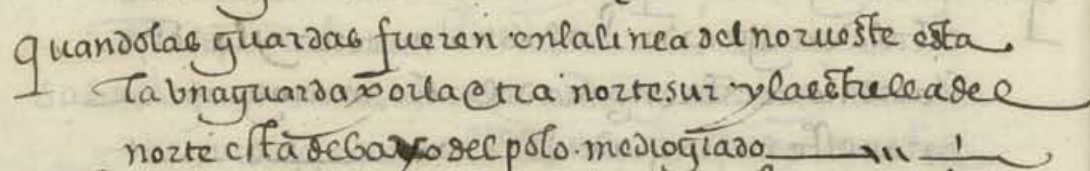 quando las guardas fueren en la linea del norueste esta
la vna guarda por la otra norte sur y la estrella del
norte esta debaxo del polo . medio grado